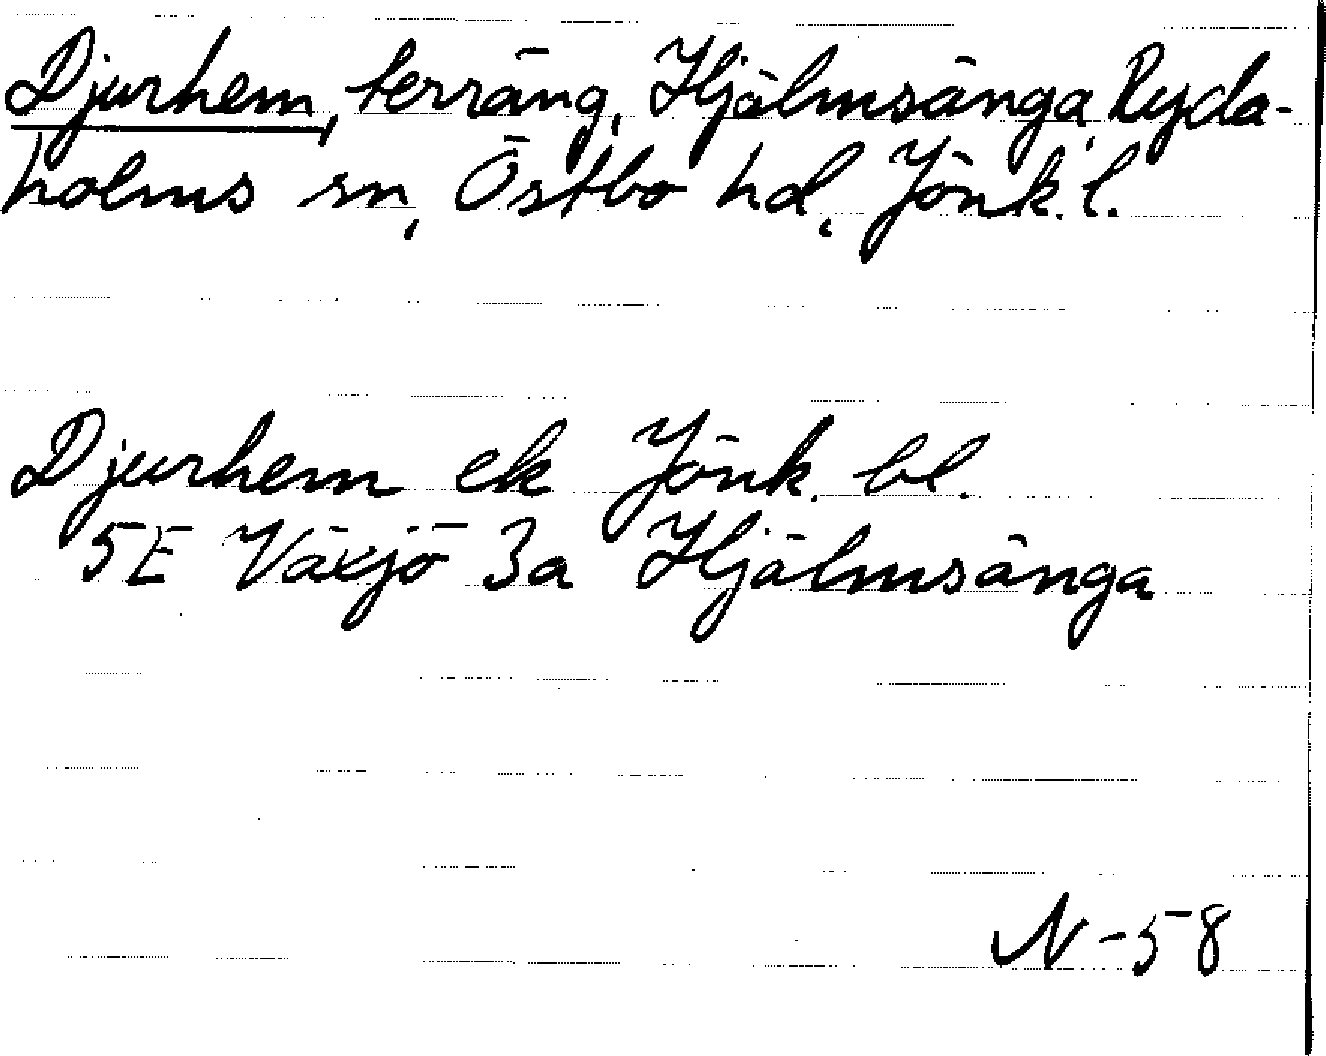 Djurhem, terräng, Hjälmsänga, Ryda-
holms sn, Östbo hd, Jönk. l.
Djurhem ek Jönk. bl.
5E Växjö 3a Hjälmsänga
N-58